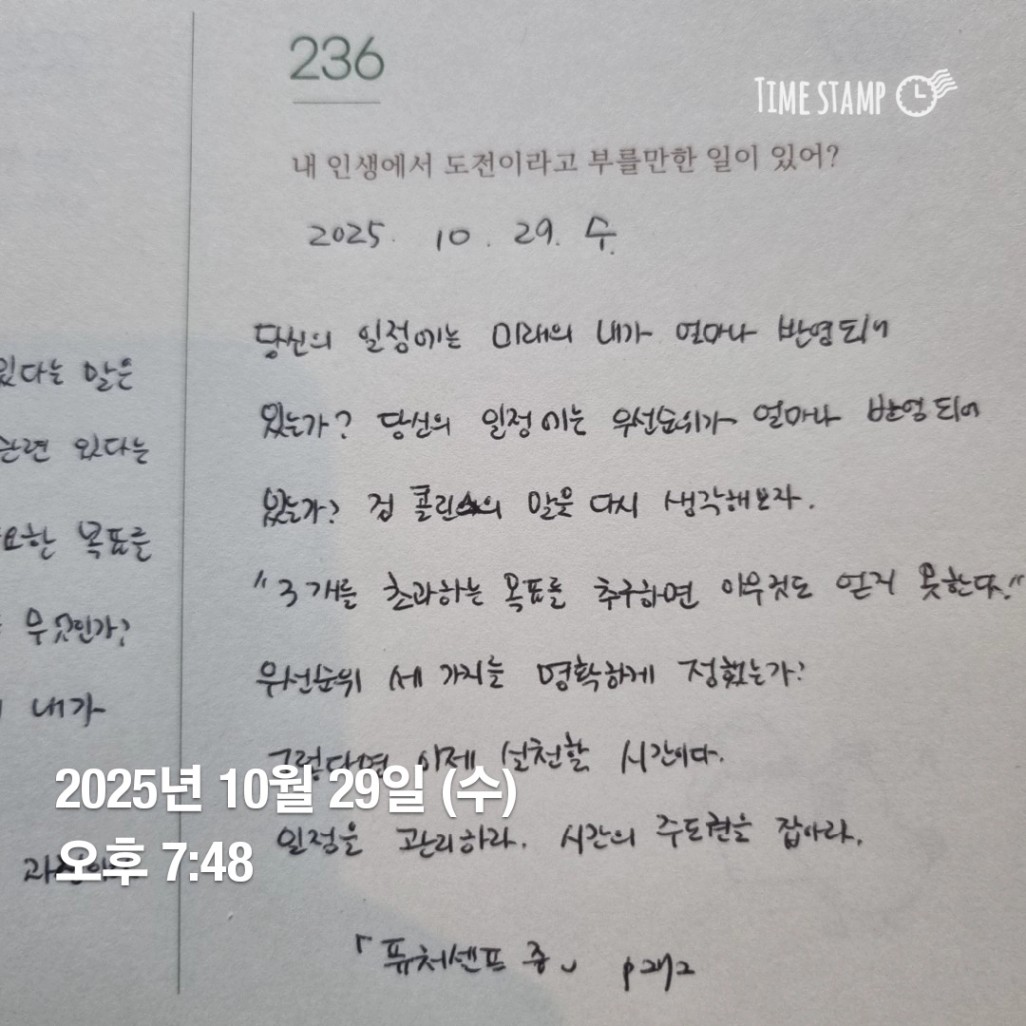 236
TIME STAMP
내 인생에서 도전이라고 부를만한 일이 있어?
2025. 10. 29. 수.
당신의 일정에는 미래의 내가 얼마나 반영되어
있는가? 당신의 일정에는 우선순위가 얼마나 반영되어
있는가? 짐 콜린스의 말을 다시 생각해보자.
"3개를 초과하는 목표를 추구하면 아무것도 얻지 못한다."
우선순위 세 가지를 명확하게 정했는가?
그렇다면 이제 실천할 시간이다.
일정을 관리하라. 시간의 주도권을 잡아라.
「퓨처셀프 중」 p272
있다는 말은
관련 있다는
한 목표를
무엇인가?
내가
2025년 10월 29일 (수)
오후 7:48